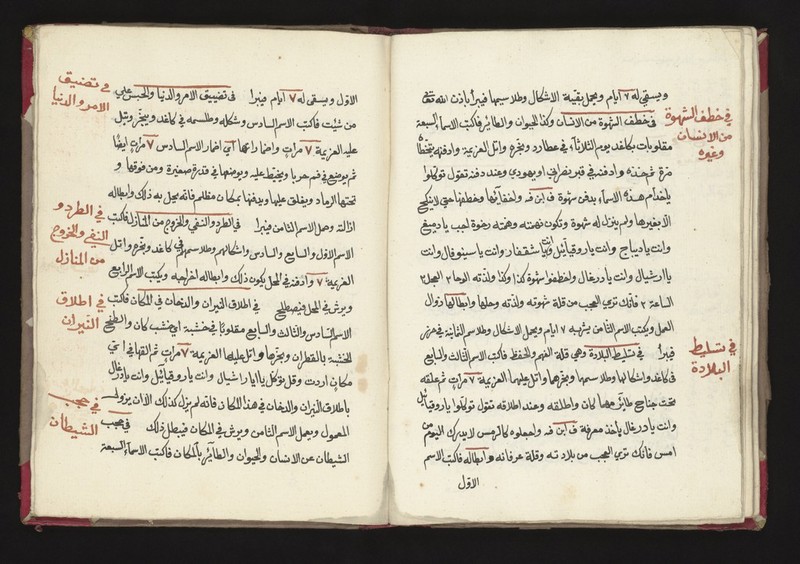 ويسقى له ٧ ايام ويحمل بقية الاشكال وطلاسيمها فيبرأ باذن الله تعالى
في خطف الشهوة من الانسان وكذا الحيوان والطائر فاكتب الاسماء السبعة
في خطف الشهوة
من الانسان
وغيره
مقلوبات بكاغد يوم الثلاثاء في عطارد وبخرهم واتل العزيمة وادفنه
وادفنه في قبر نصراني او يهودي وعند دفنه تقول توكلوا
ياخدام هذه الاسماء بدفن شهوة ف ابن فه
الا بغيرها ولم ينزل له شهوة وتكون
وانت يا ديباج وانت يا روقيائيل وانت يا شقفار وانت يا سينوفال وانت
يا ارشيال وانت يا درغال واخطفوا شهوة كذا وكذا ولذته الوحا ٢ العجل ٢
الساعة ٢ فانك ترى العجب من قلة شهوته ولذته وحلها وابطالها زوال
العمل ويكتب الاسم الثامن يشربه ٧ ايام ويحمل الاشكال وطلاسم الثمانية في حرز
فيبرأ في تسليط البلادة وهي قلة الفهم والحفظ فاكتب الاسم الثالث والسابع
في تسليط
البلادة
في كاغد واشكالها وطلاسمها وبخرهما واتل عليهما العزيمة ٧ مرات ثم علقه
تحت جناح طائر مهما كان واطلقه وعند اطلاقه تقول توكلوا يا روقيائيل
وانت يا درغال ياخذ معرفة ف ابن فه واجعلوه كالرمس لا يدرك اليوم من
امس فانك ترى العجب من بلادته وقلة عرفانه وابطاله فاكتب الاسم
الاول
الاول ويسقى له ٧ ايام فيبرا في تضييق الامر والدنيا والحبس على
في تضيق
الامر والدنيا
من شئت فاكتب الاسم السادس وشكله وطلسمه في كاغد وبخر وتل
عليه العزيمة ٧ مرات واضمار اعها اي اضمار الاسم السادس ٧ مرات ايضا
ثم يوضع في فم حربا ويخيط عليه ويوضعها في قدرة صغيرة ومن فوقها و
تحتها الرماد ويغلق عليها ويدفنها بمكان مظلم فانه يحل به ذلك وابطاله
ازالته وحمل الاسم الثامن فيبرا في الطرد والنفي والخروج من المنازل فاكتب
في الطرد و
النفي والخروج
من المنازل
الاسم الاول والسابع والسادس واشكالهم وطلاسمهم في كاغد وبخرهم واتل
العزيمة ٧ وادفنه في المحل يكون ذلك وابطاله اخراجه ويكتب الاسم الرابع
ويرش في المحل فيصطلح في اطلاق النيران والدخان في المكان فاكتب
في اطلاق
النيران
الاسم السادس والثالث والسابع مقلوبا في خشبة اي خشب كان والطخ
الخشبة بالقطران وبخرها واتل عليها العزيمة ٧ مرات ثم القها في اي
مكان اردت وقل توكل يا ايا ارشيال وانت يا روقيائيل وانت يا درغال
باطلاق النيران والدخان في هذا المكان فانه لم يزل كذلك الا ان يزول
المعمول ويعمل الاسم الثامن ويرش في المكان فيبطل ذلك في حجب
في حجب
الشيطان
الشيطان عن الانسان والحيوان والطائر بالمكان فاكتب الاسماء السبعة